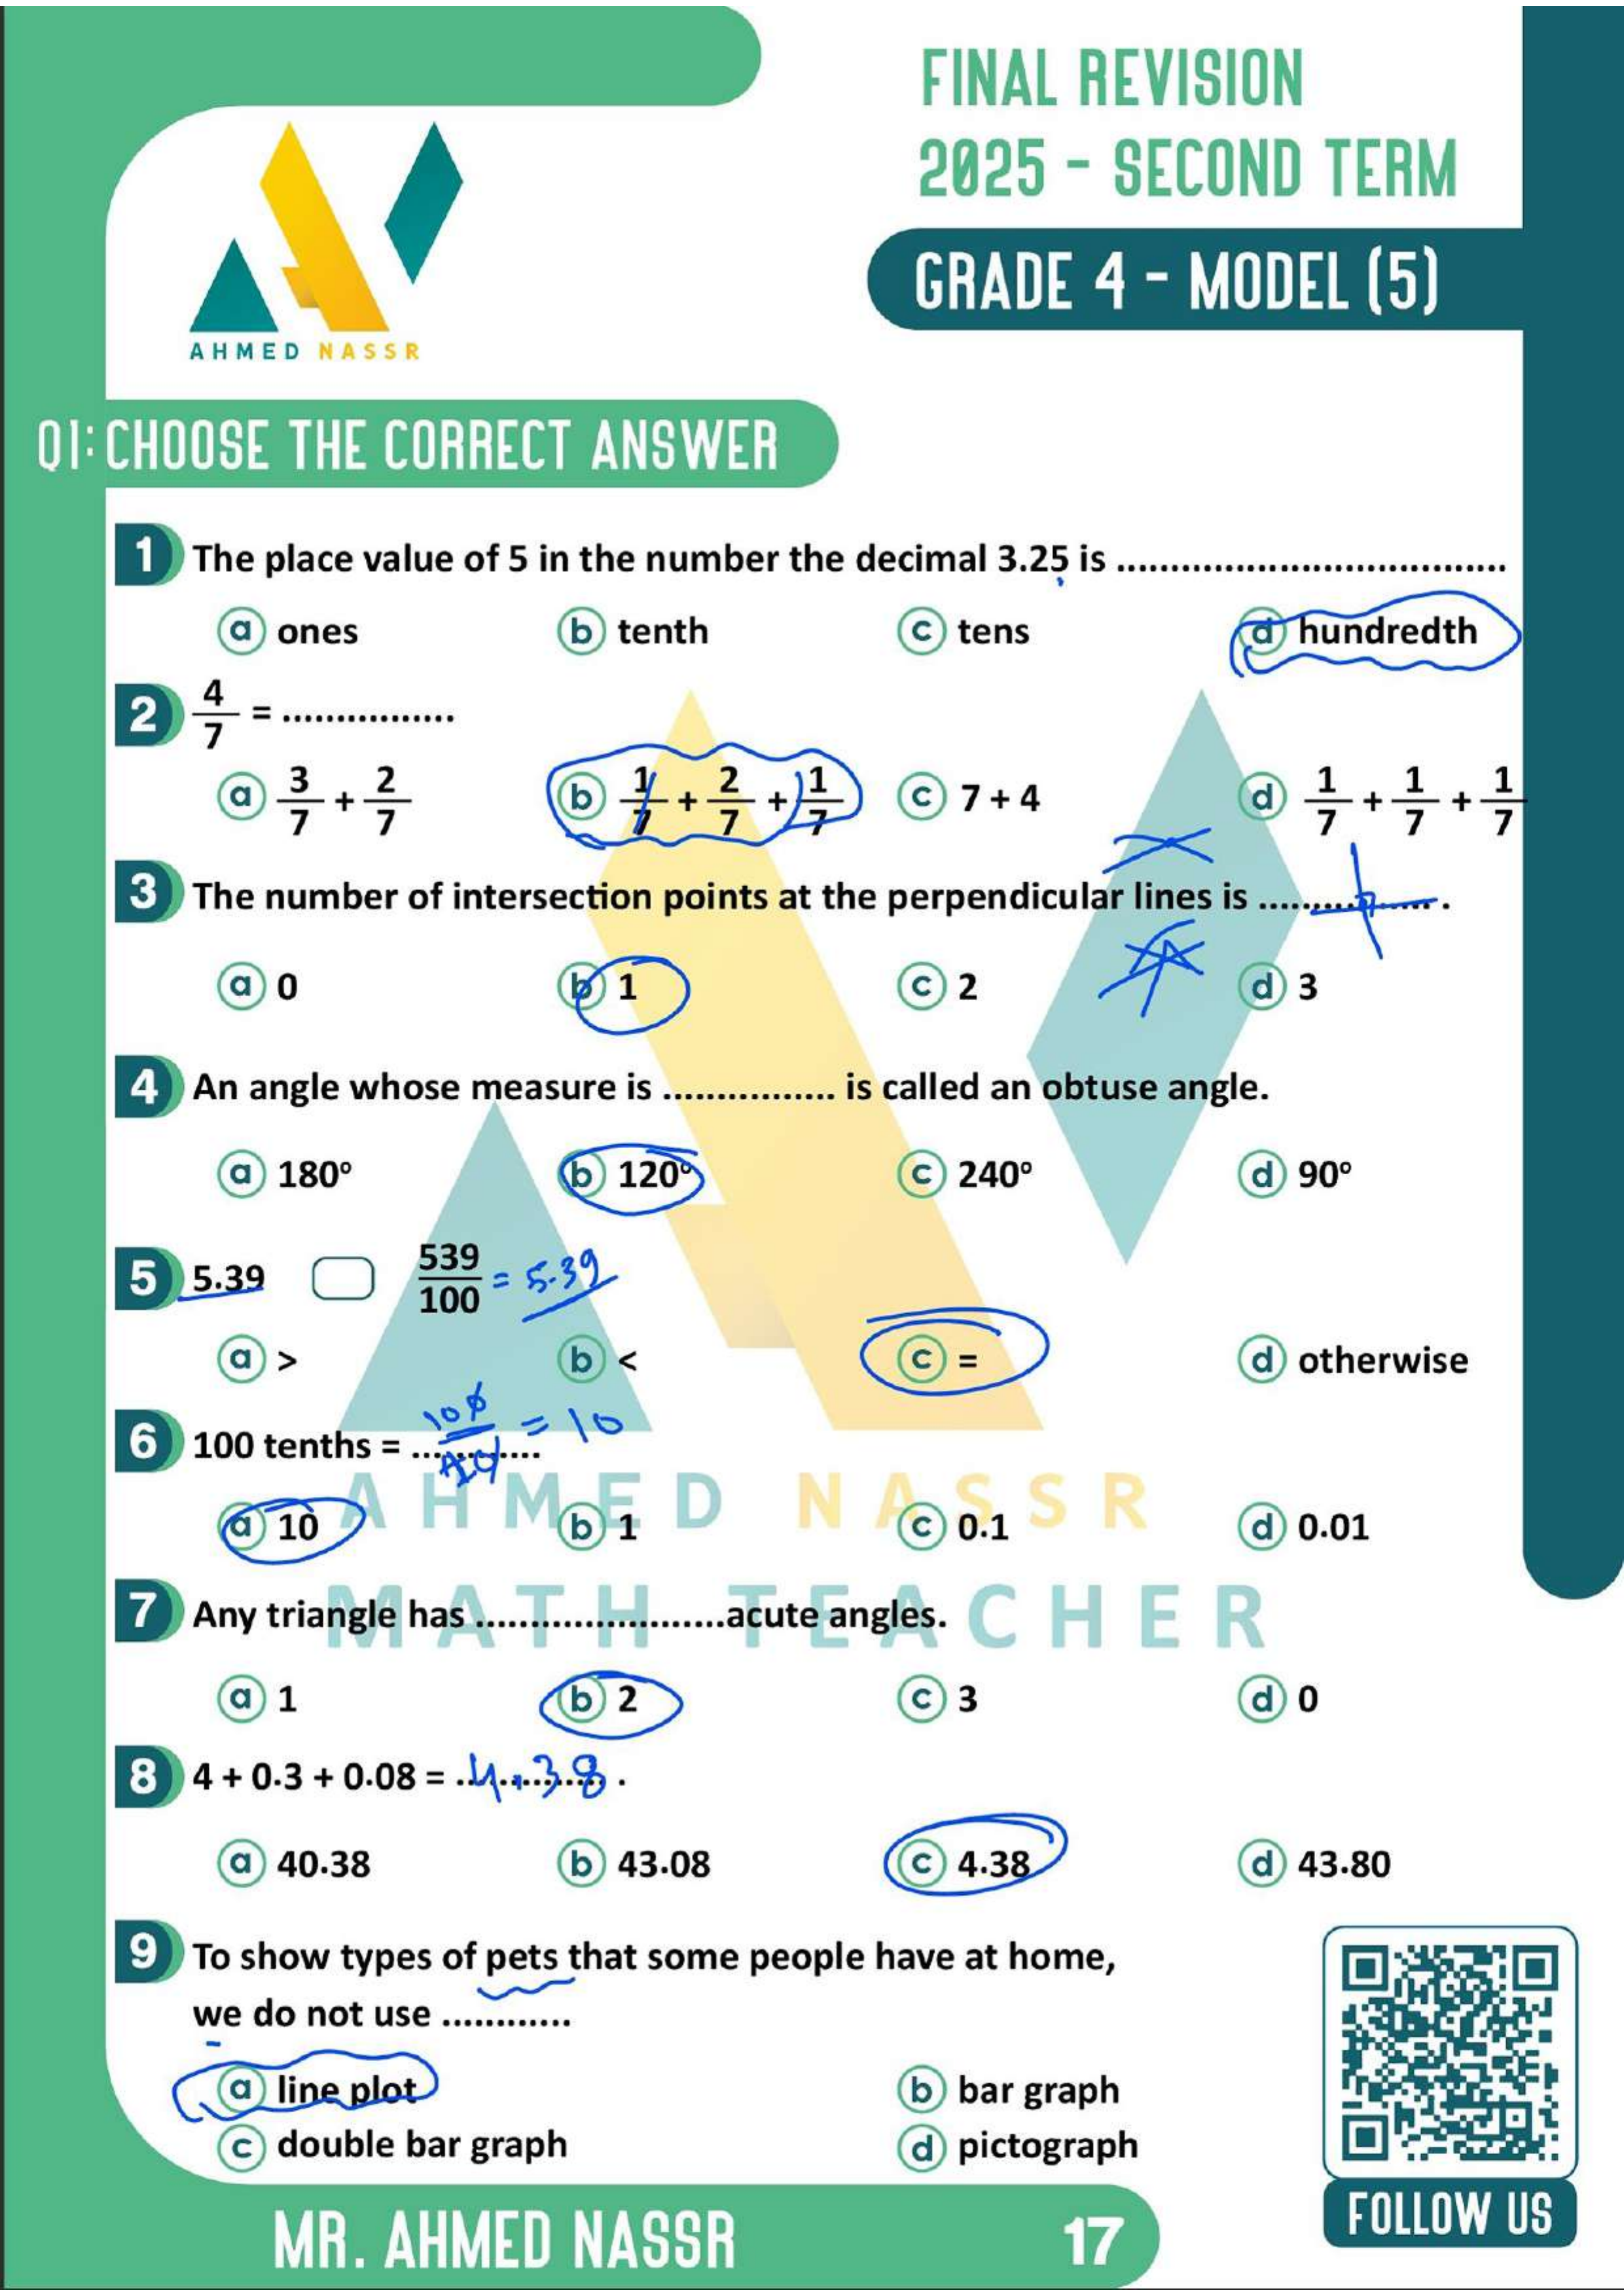 FINAL REVISION
2025 - SECOND TERM
GRADE 4 - MODEL (5)
AHMED NASSR
Q1: CHOOSE THE CORRECT ANSWER
1 The place value of 5 in the number the decimal 3.25 is ....................................
a ones b tenth c tens d hundredth
2 4/7 = ................
a 3/7 + 2/7 b 1/7 + 2/7 + 1/7 c 7 + 4 d 1/7 + 1/7 + 1/7
3 The number of intersection points at the perpendicular lines is .................. .
a 0 b 1 c 2 d 3
4 An angle whose measure is ................ is called an obtuse angle.
a 180° b 120° c 240° d 90°
5 5.39 539/100 = 5.39
a > b < c = d otherwise
6 100 tenths = ............ 100/10 = 10
a 10 b 1 c 0.1 d 0.01
AHMED NASSR
7 Any triangle has .......................acute angles.
MATH TEACHER
a 1 b 2 c 3 d 0
8 4 + 0.3 + 0.08 = 4.38 .
a 40.38 b 43.08 c 4.38 d 43.80
9 To show types of pets that some people have at home,
we do not use ............
a line plot b bar graph
c double bar graph d pictograph
MR. AHMED NASSR 17
FOLLOW US